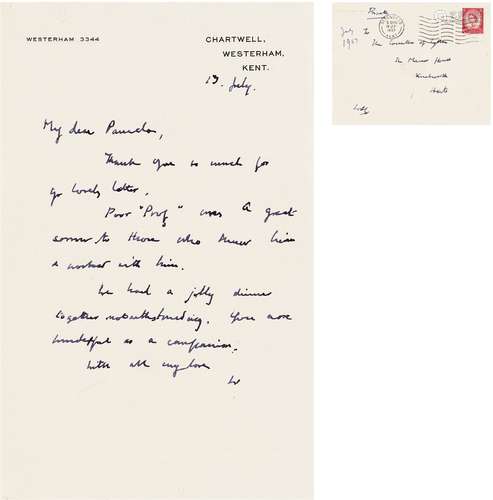 WESTERHAM 3344
CHARTWELL,
WESTERHAM,
KENT.
13 July.
My dear Pamela,
Thank you so much for
yo lovely letter.
Poor "Prof" was a great
sorrow to those who knew him
& worked with him.
We had a jolly dinner
together notwithstanding. You are
wonderful as a companion.
With all my love
W
Private
July
1957
The Countess of Lytton
The Manor House
Knebworth
Herts